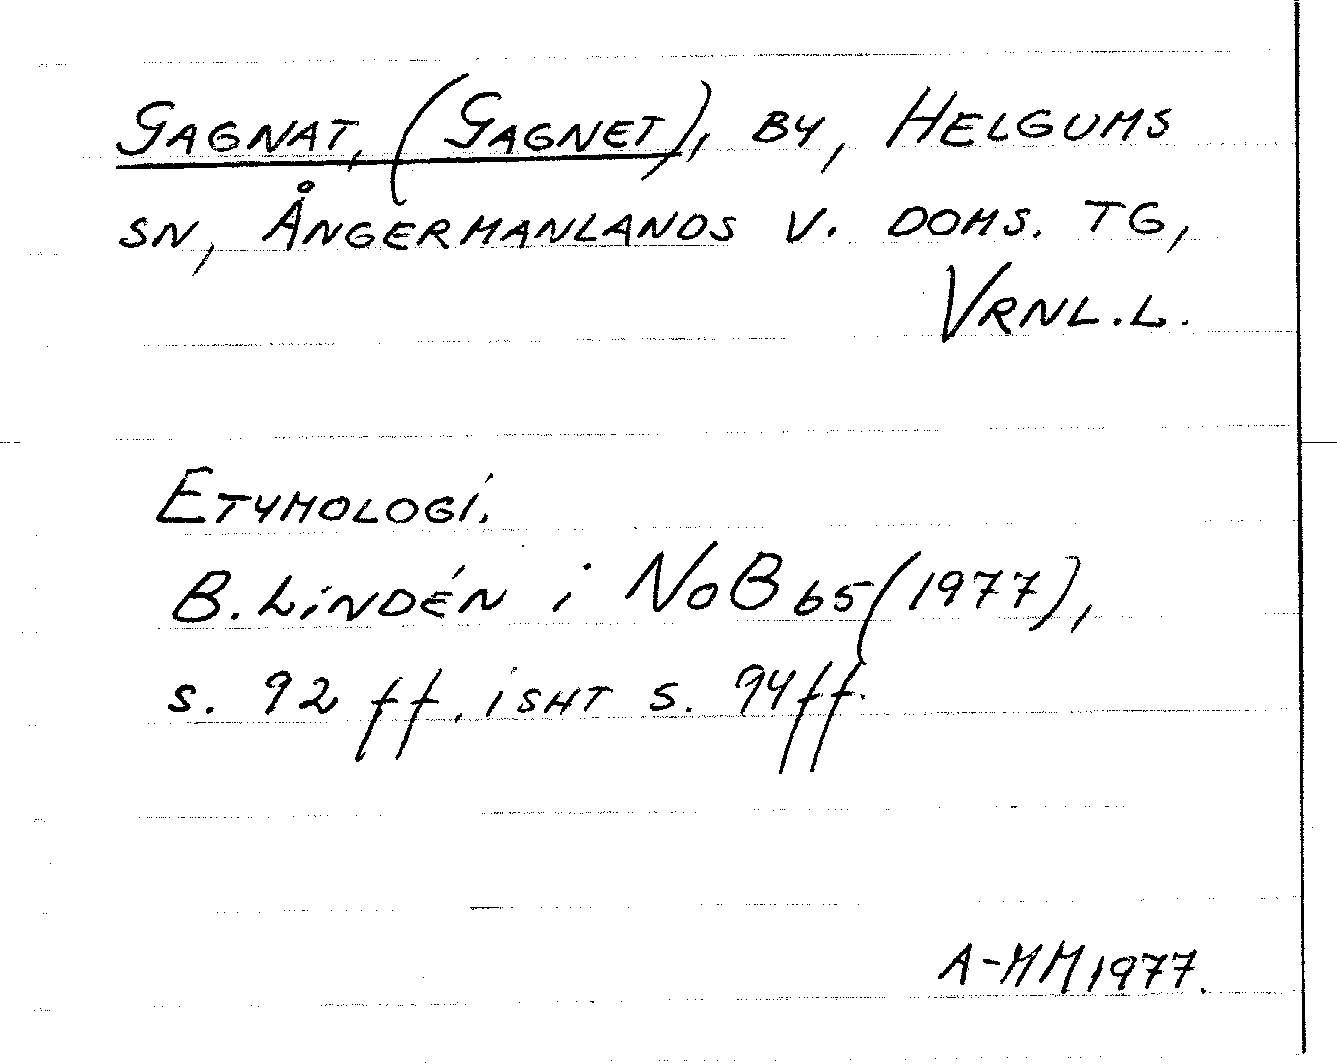 GAGNAT, (GAGNET), BY, HELGUMS
SN, ÅNGERMANLANDS V. DOMS. TG,
VRNL.L.
ETYMOLOGI.
B. LINDÉN i NoB 65 (1977),
s. 92 ff, isht s. 94 ff.
A-MM 1977.